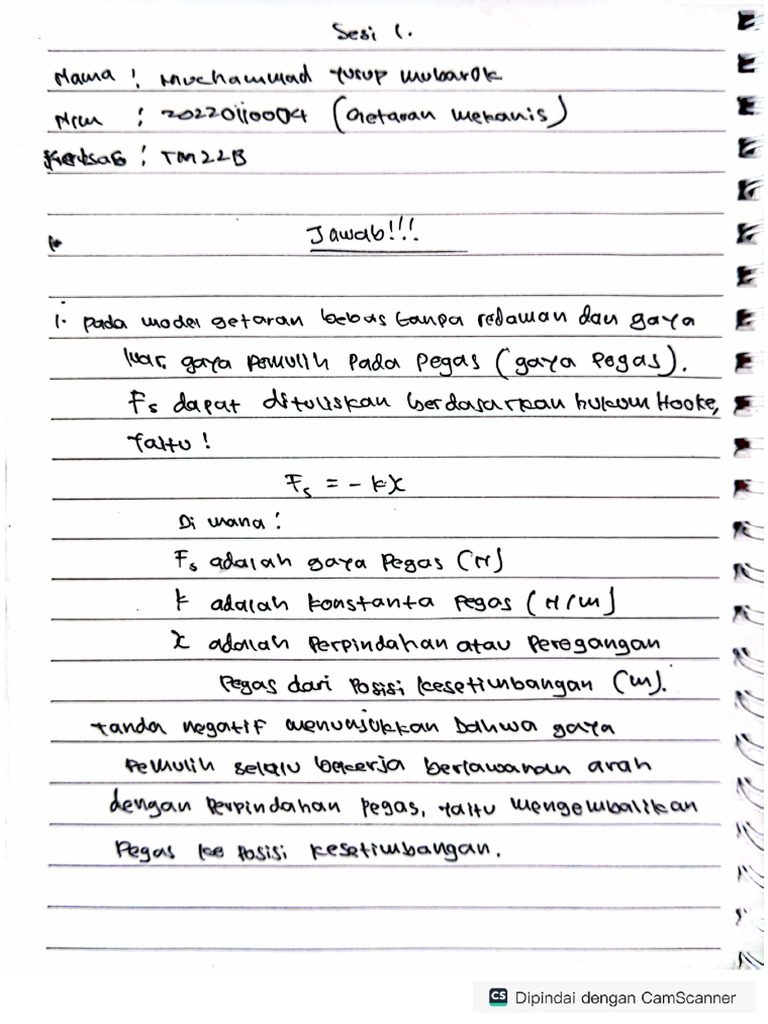 Sesi 1.
Nama : Muchammad Yusup Mubarok
Nim : 20220110004 (Getaran Mekanis)
: TM22B
Jawab!!!
1. Pada model getaran bebas tanpa redaman dan gaya
luar, gaya pemulih pada pegas (gaya pegas).
Fs dapat dituliskan berdasarkan hukum Hooke,
Yaitu !
Fs = - kx
Di mana :
Fs adalah gaya pegas (N)
k adalah konstanta pegas (N/m)
x adalah Perpindahan atau Peregangan
Pegas dari Posisi kesetimbangan (m).
tanda negatif menunjukkan bahwa gaya
Pemulih selalu bekerja berlawanan arah
dengan Perpindahan pegas, yaitu mengembalikan
Pegas ke Posisi kesetimbangan.
CS Dipindai dengan CamScanner